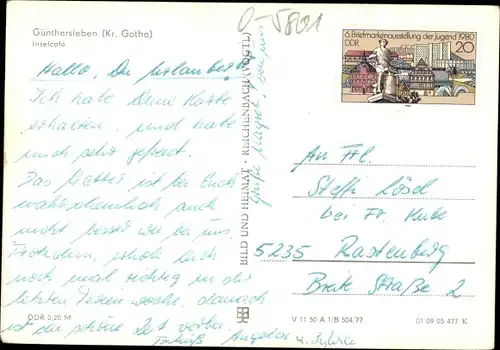 Günthersleben (Kr. Gotha)
Inselcafé
O-5801
6. Briefmarkenausstellung der Jugend 1980
DDR
20
Hallo, Du
Ich habe Deine Karte
erhalten, und habe
mich sehr gefreut.
Das ist bei Euch
wahrscheinlich auch
nicht besser als bei uns.
Trotzdem, erhole Dich
noch mal richtig in der
letzten Ferienwoche, danach
ist die schöne Zeit vorbei.
Tschüß Angelika u. Sylvia
BILD UND HEIMAT · REICHENBACH (VOGTL)
An Frl.
Steffi Lösel
bei Fr. Kube
5235 Rastenberg
Breite Straße 2
DDR 0,20 M
V 11 50 A 1/B 504/77
01 09 05 477 K